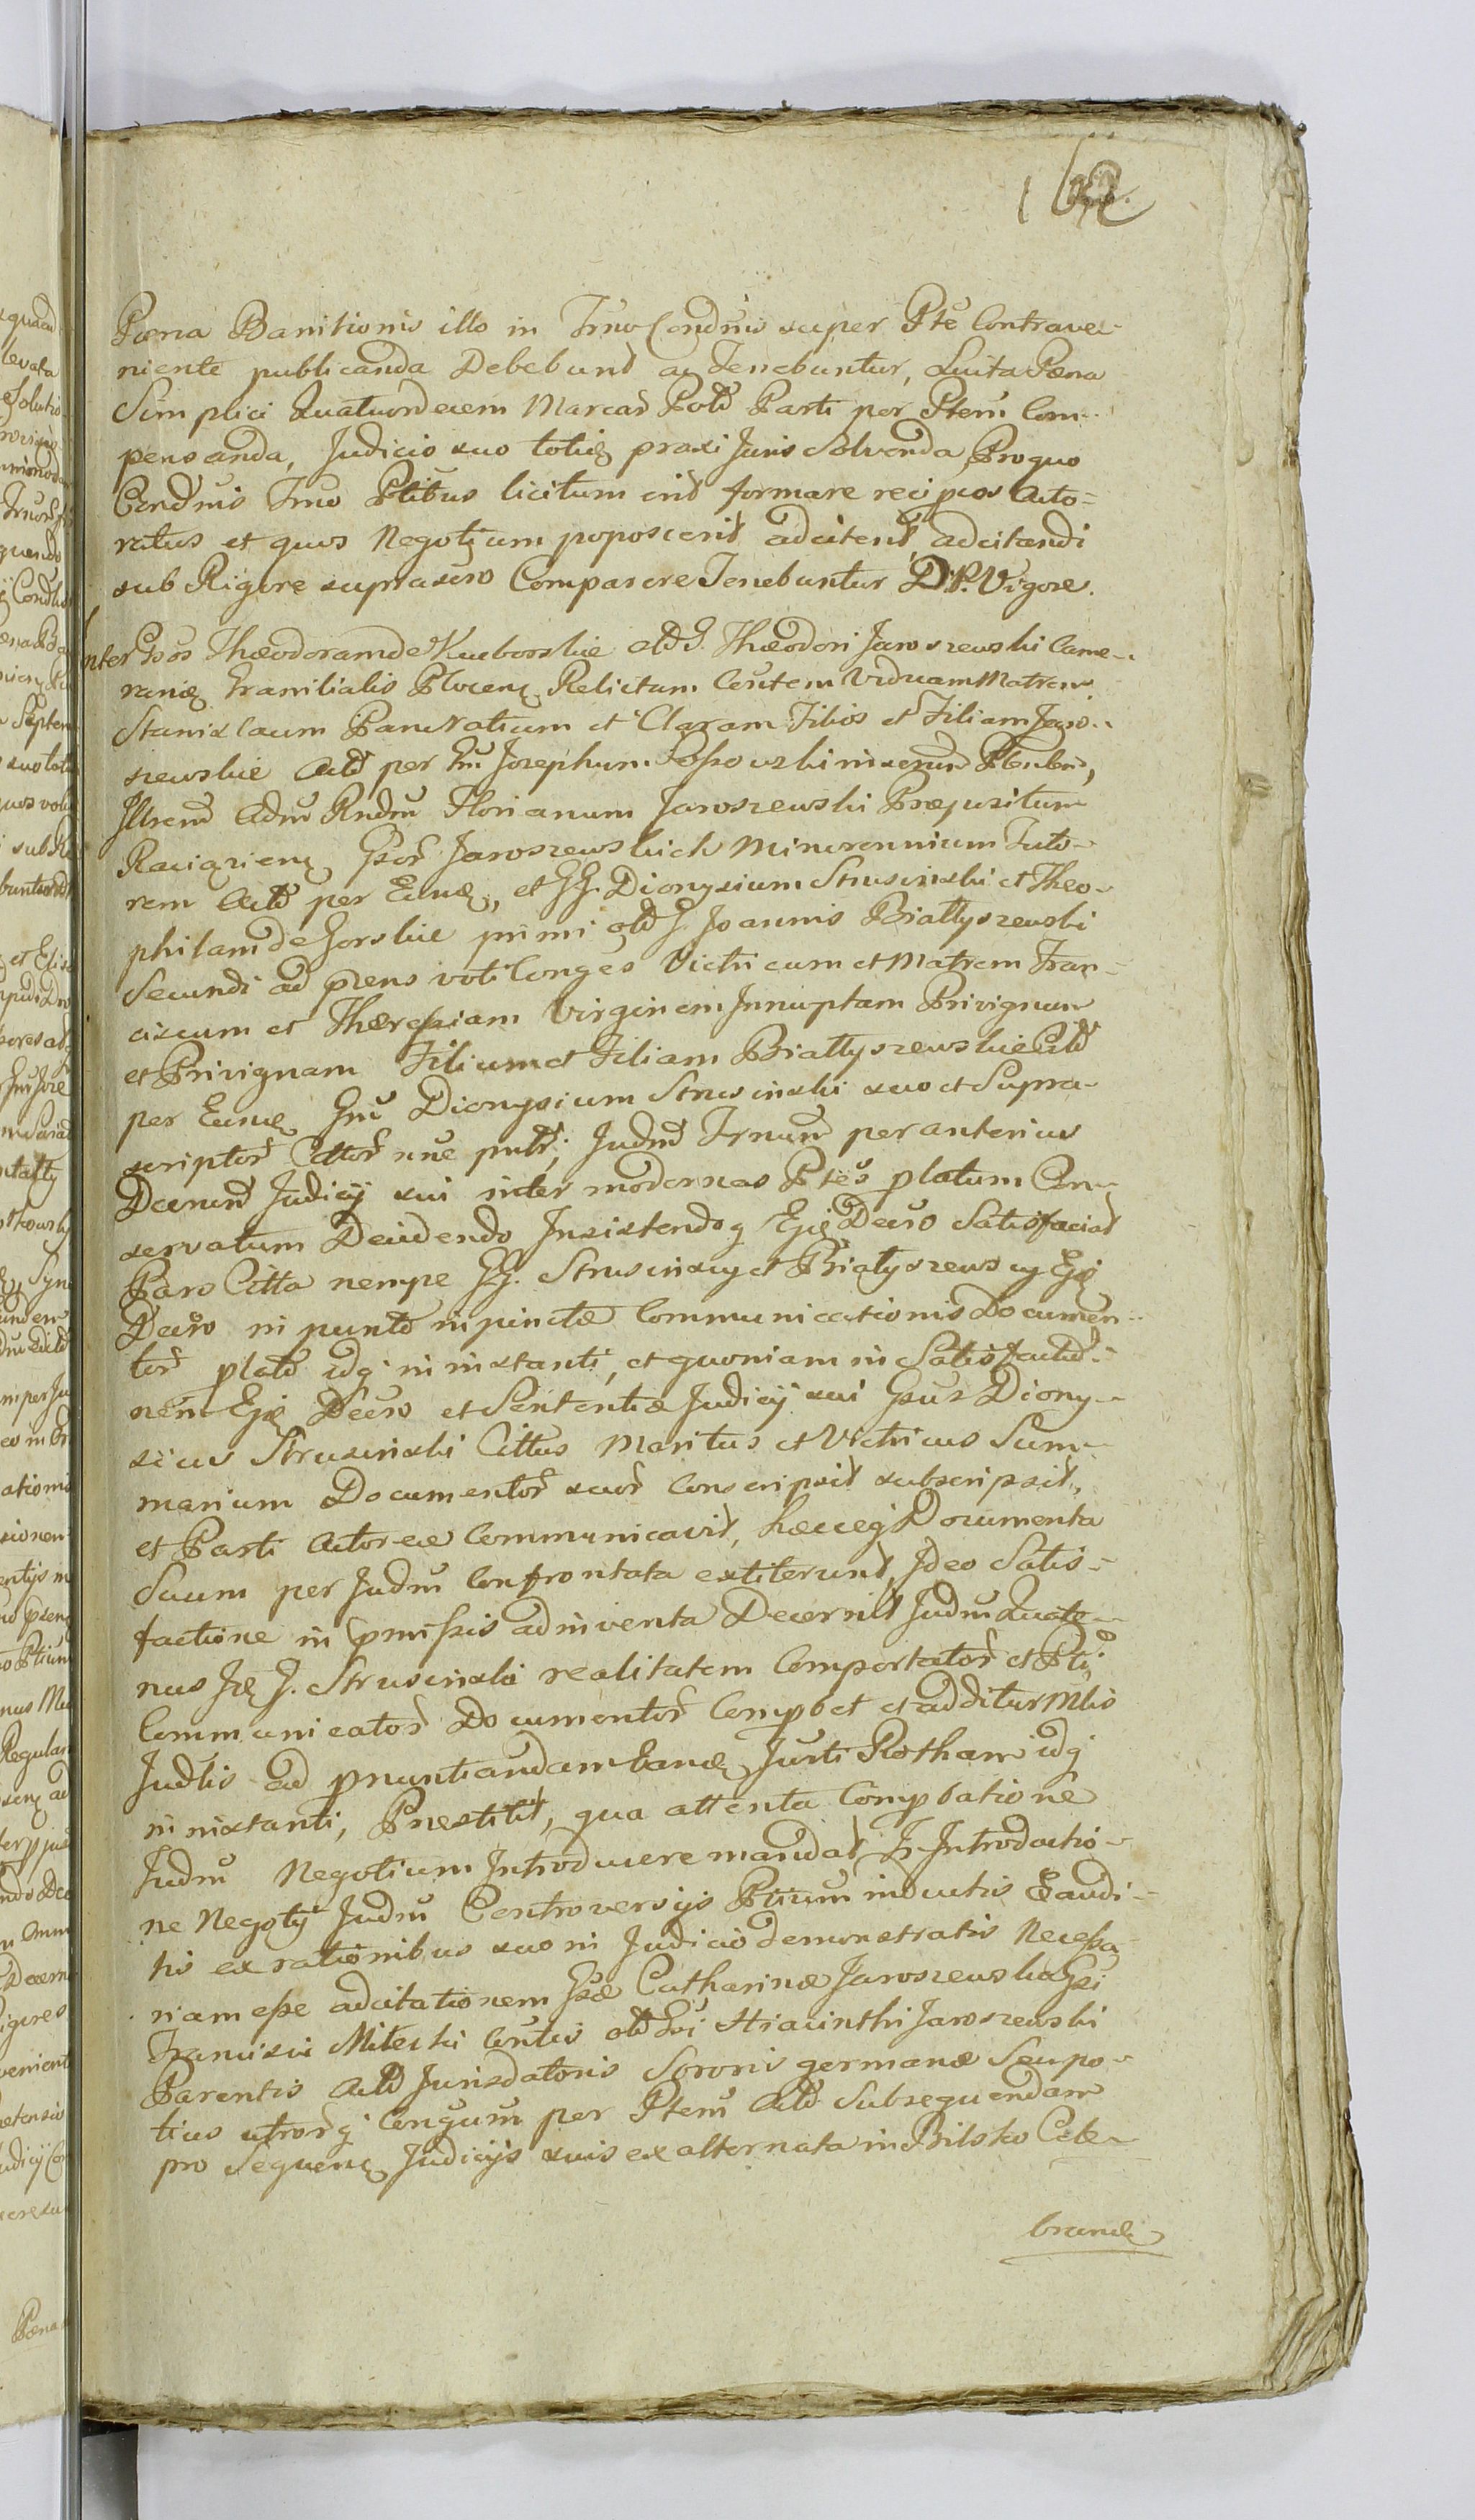 Pæna Banitionis illo in Trno Condnis super Pte Contrave-
niente publicanda Debebunt ac Tenebuntur, Luita Pæna
Simplici Quatuordecem Marcar Pold Parti per Ptem Com-
pensanda, Judicio suo toties praxi Juris Solvenda, Pro quo
Condnis Trno Ptibus licitum erit formare recipcos Acto-
ratus et quos Negotium poposcerit adcitent, adcitandi
sub Rigore suprascro Comparere Tenebuntur D. P. Vigore.
Inter Gsos Theodoram de old G. Theodori Jaroszewski Came-
Granitialis Plocen Relictam Contem Viduam Matrem
Stanislaum Pancratium et Claram Filios et Filiam Jaro-
szewskie Actd per Gm Josephum Ptenlem,
Illrem Adm Rndm Florianum Jaroszewski Præpositum
Raciązien Gsor Jaroszewskich Minorennium Tuto-
rem Actd per Eund, et GG. Dionysium Strusinski et Theo-
philam de Gorskie primi old G. Joannis Białłyszewski
Secundi ad præns voti Conges Victricum et Matrem Fran-
ciscum et Theressiam Virginem Innuptam Privignum
et Privignam Filium et Filiam Białłyszewskie Citd
per Eund Gm Dionysium Strusinski suo et Supra-
scriptor Cittor nne pntt; Judm Trnum per anterius
Decrum Judicij sui inter modernas Ptes platum Con-
servatum Decidendo Insistendoq Ejq Decro Satisfaciat
Pars Citta nempe GG. Strusinscy et Białyszewscy Ejq
Decro in puncto inpunctæ Communicationis Documen-
tor platd idq in instanti, et quoniam in Satisfactio-
nem Ejq Decro et Sententiæ Judicij sui Gsus Diony-
sius Strusinski Cittus Maritus et Victricus Sum-
marium Documentor suor Conscripsit subscripsit,
et Parti Actoreæ Communicavit, hæceq Documenta
Suum per Judm Confrontata extiterunt, Ideo Satis-
factione in præmissis adinventa Decernit Judm Quate-
nus Jd G. Strusinski realitatem Comportator et Pti
Communicator Documentor Compbet et additur Mlis
Judlis ad pnuntiandam Eand Jurti Rotham idq
in instanti, Præstitit, qua attenta Compbatione
Judm Negotium Introducere mandat. In Introductio-
ne Negotij Judm Controversijs Ptium inductis Exaudi-
tis ex rationibus suo in Judicio demonstratis Necessa-
riam esse adcitationem Gsæ Catharinæ Jaroszewska Gsi
Francisci Miłecki Contis old Gsi Hiacinthi Jaroszewski
Parentis Actd Jurisdatoris Sororis germanæ Seu po-
tius utrorq Congum per Ptem Actd Subsequendam
pro Sequen Judicijs suis ex alternata in Bilsko Cele-
brand